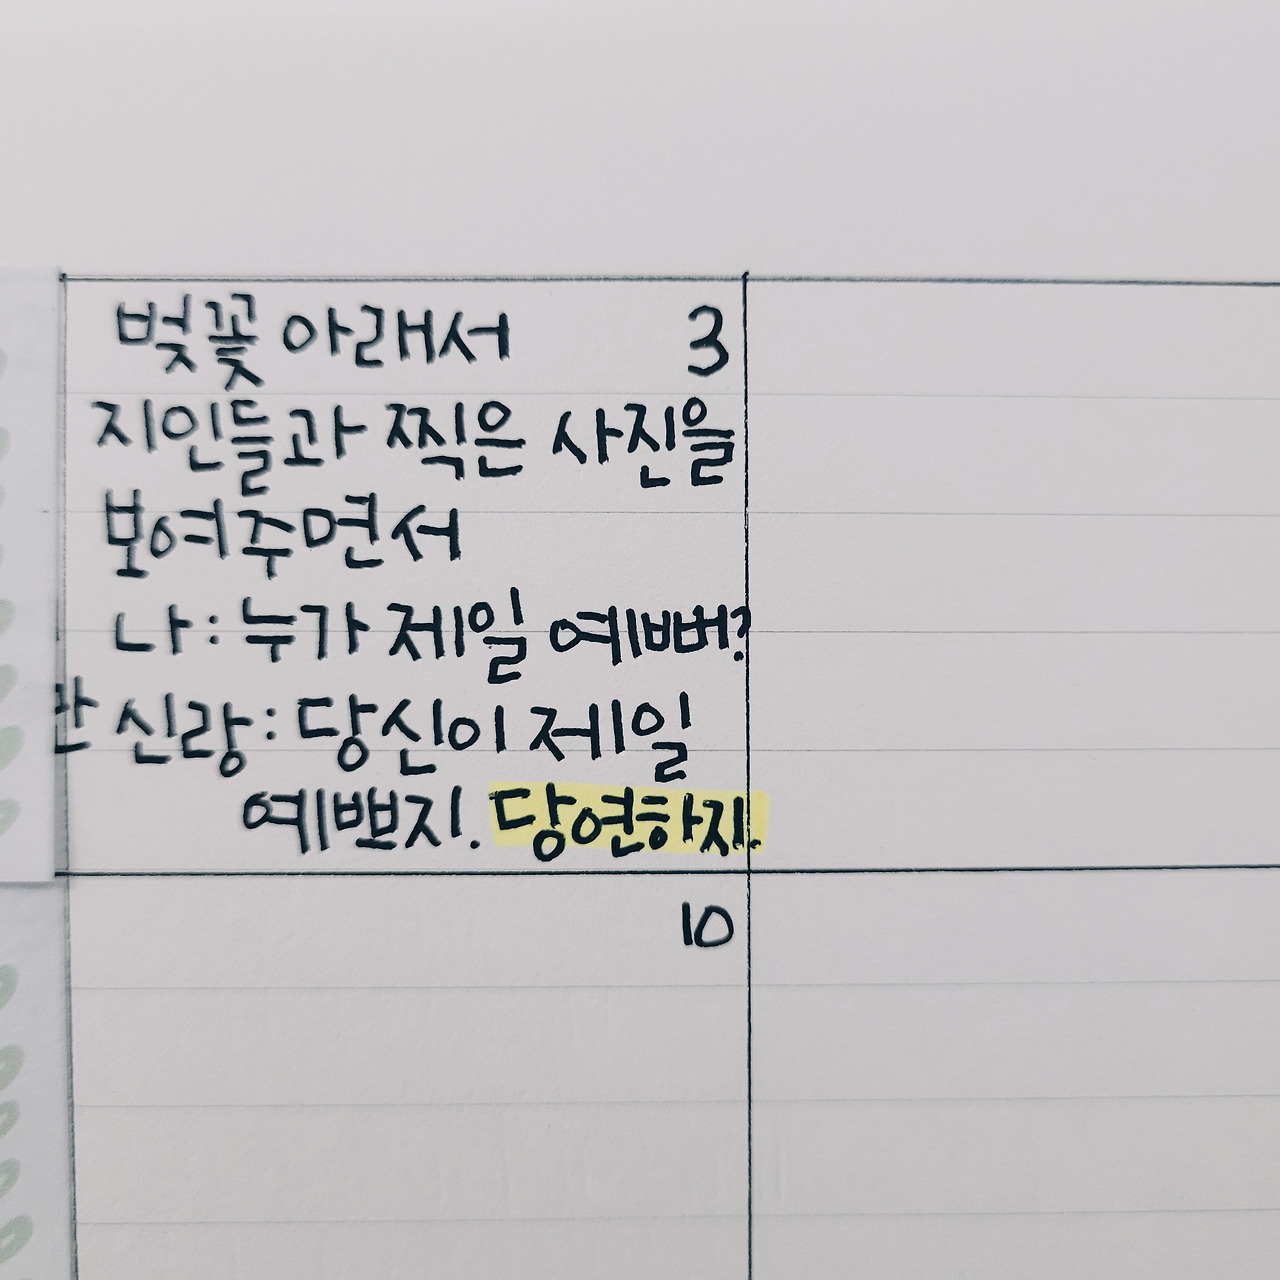 벚꽃 아래서 3
지인들과 찍은 사진을
보여주면서
나: 누가 제일 예뻐?
신랑: 당신이 제일
예쁘지. 당연하지.
10